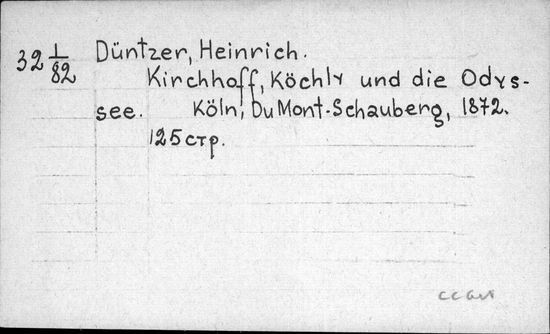 32 1/82 Düntzer, Heinrich.
Kirchhoff, Köchly und die Odys-
see. Köln, DuMont-Schauberg, 1872.
125 стр.